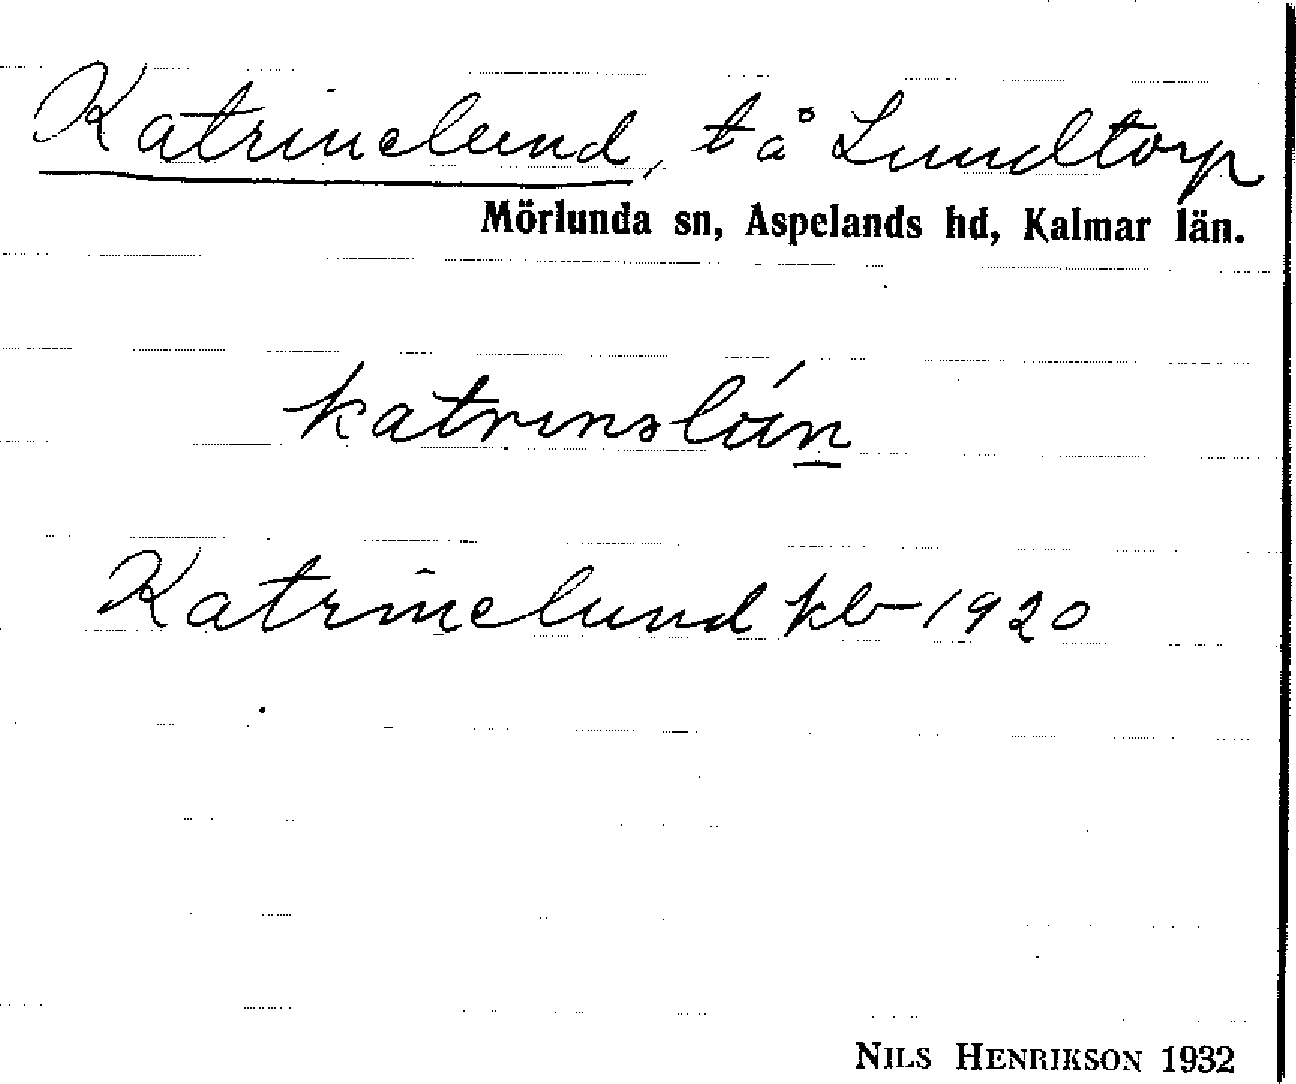 Katrinelund, tå Lundtorp
Mörlunda sn, Aspelands hd, Kalmar län.
Katrinelund kb 1920
NILS HENRIKSON 1932